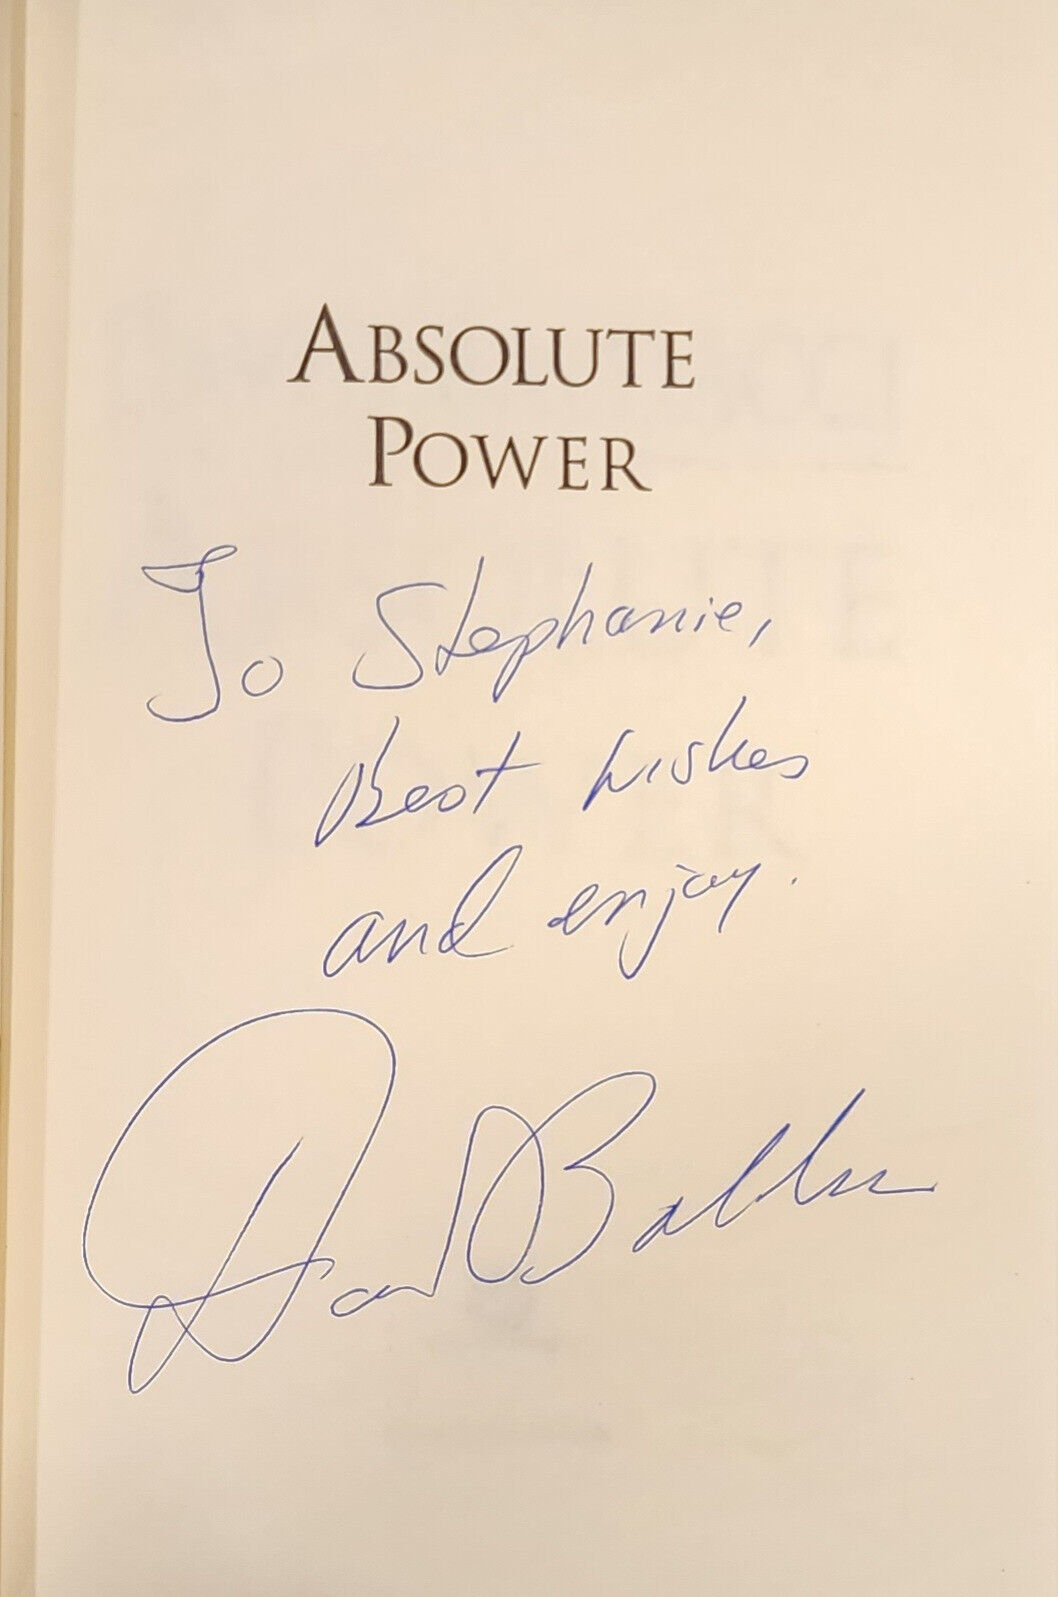 ABSOLUTE
POWER
To Stephanie,
Best wishes
and enjoy.
David Baldacci